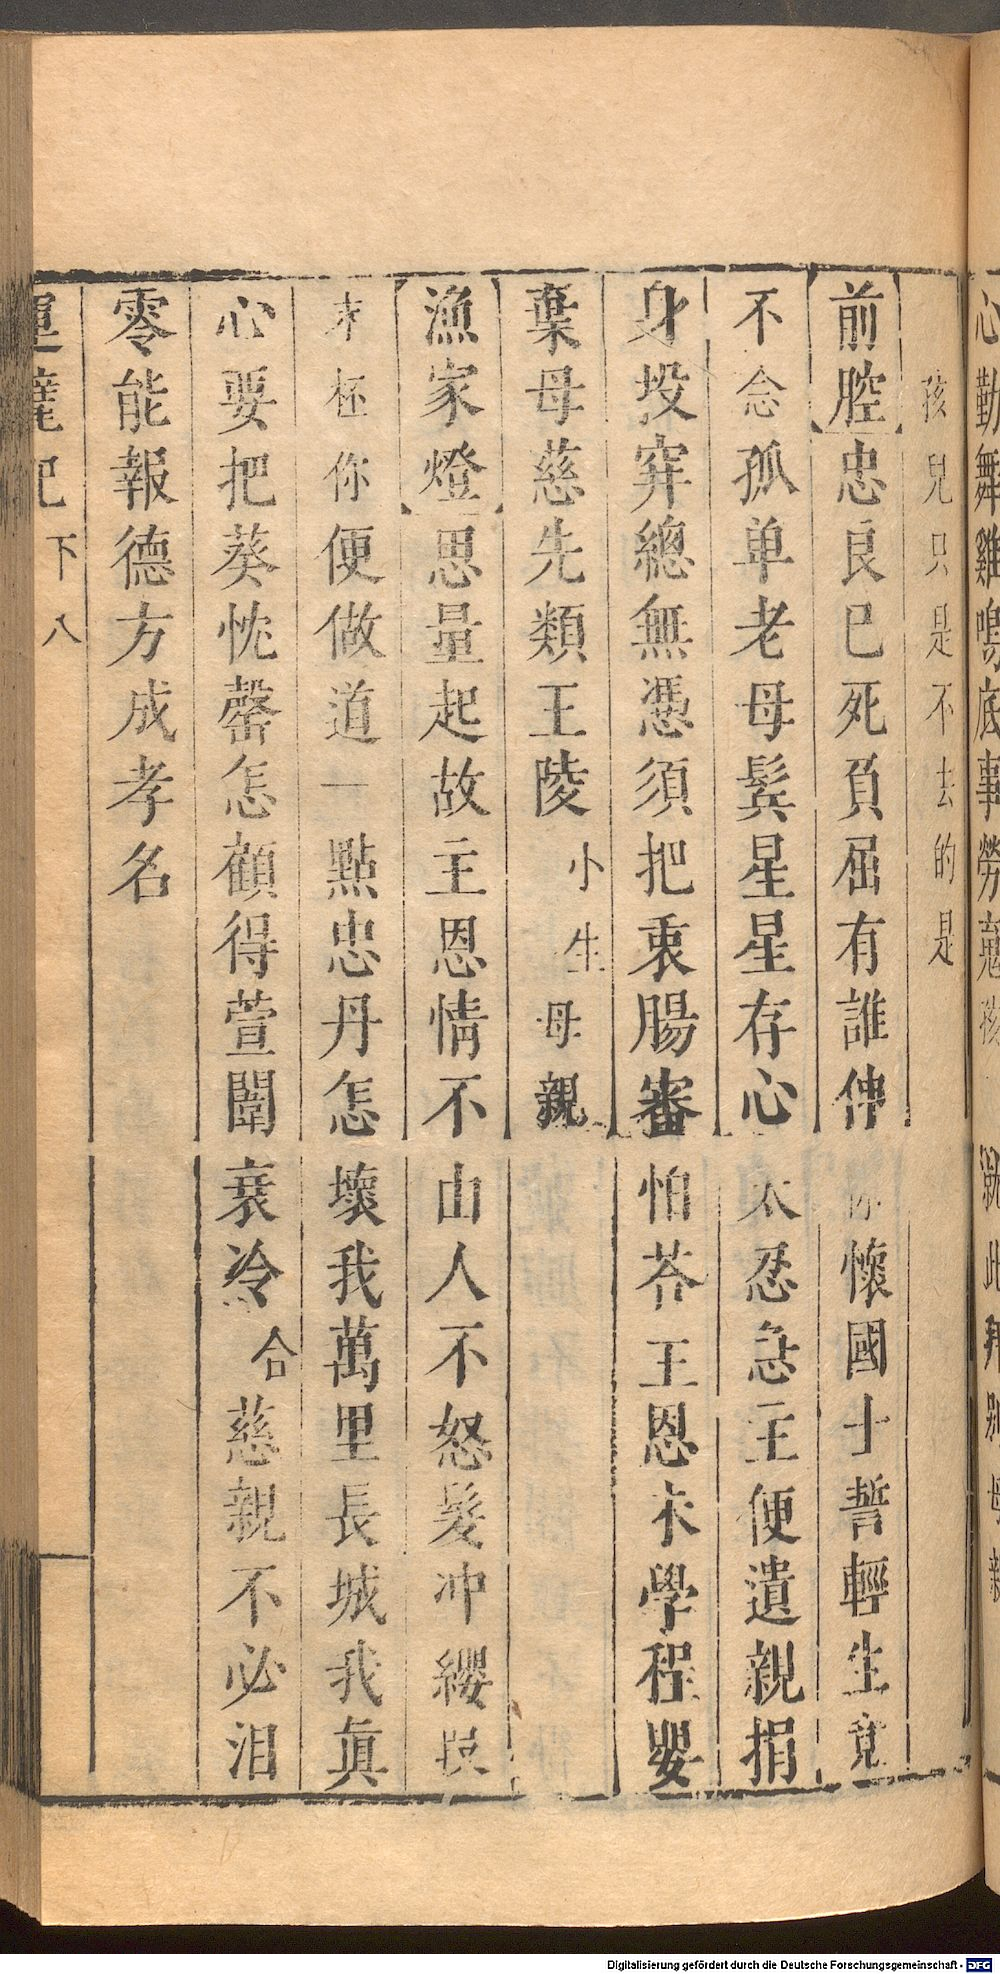 心勤舞雞鳴底事勞
就此拜別母親
孩兒只是不去的是
前腔忠良已死負屈有誰伸你懷國士誓輕生竟
不念孤单老母鬂星星存心太忍急主便遺親捐
身投穽總無憑須把衷腸審怕荅王恩未學程嬰
棄母慈先類王陵小生母親
漁家燈思量起故主恩情不由人不怒髮冲纓
你便做道一點忠丹怎壞我萬里長城我眞
心要把葵忱罄怎顧得萱闈衰冷合慈親不必泪
零能報德方成孝名
運甓記下八
Digitalisierung gefördert durch die Deutsche Forschungsgemeinschaft - DFG